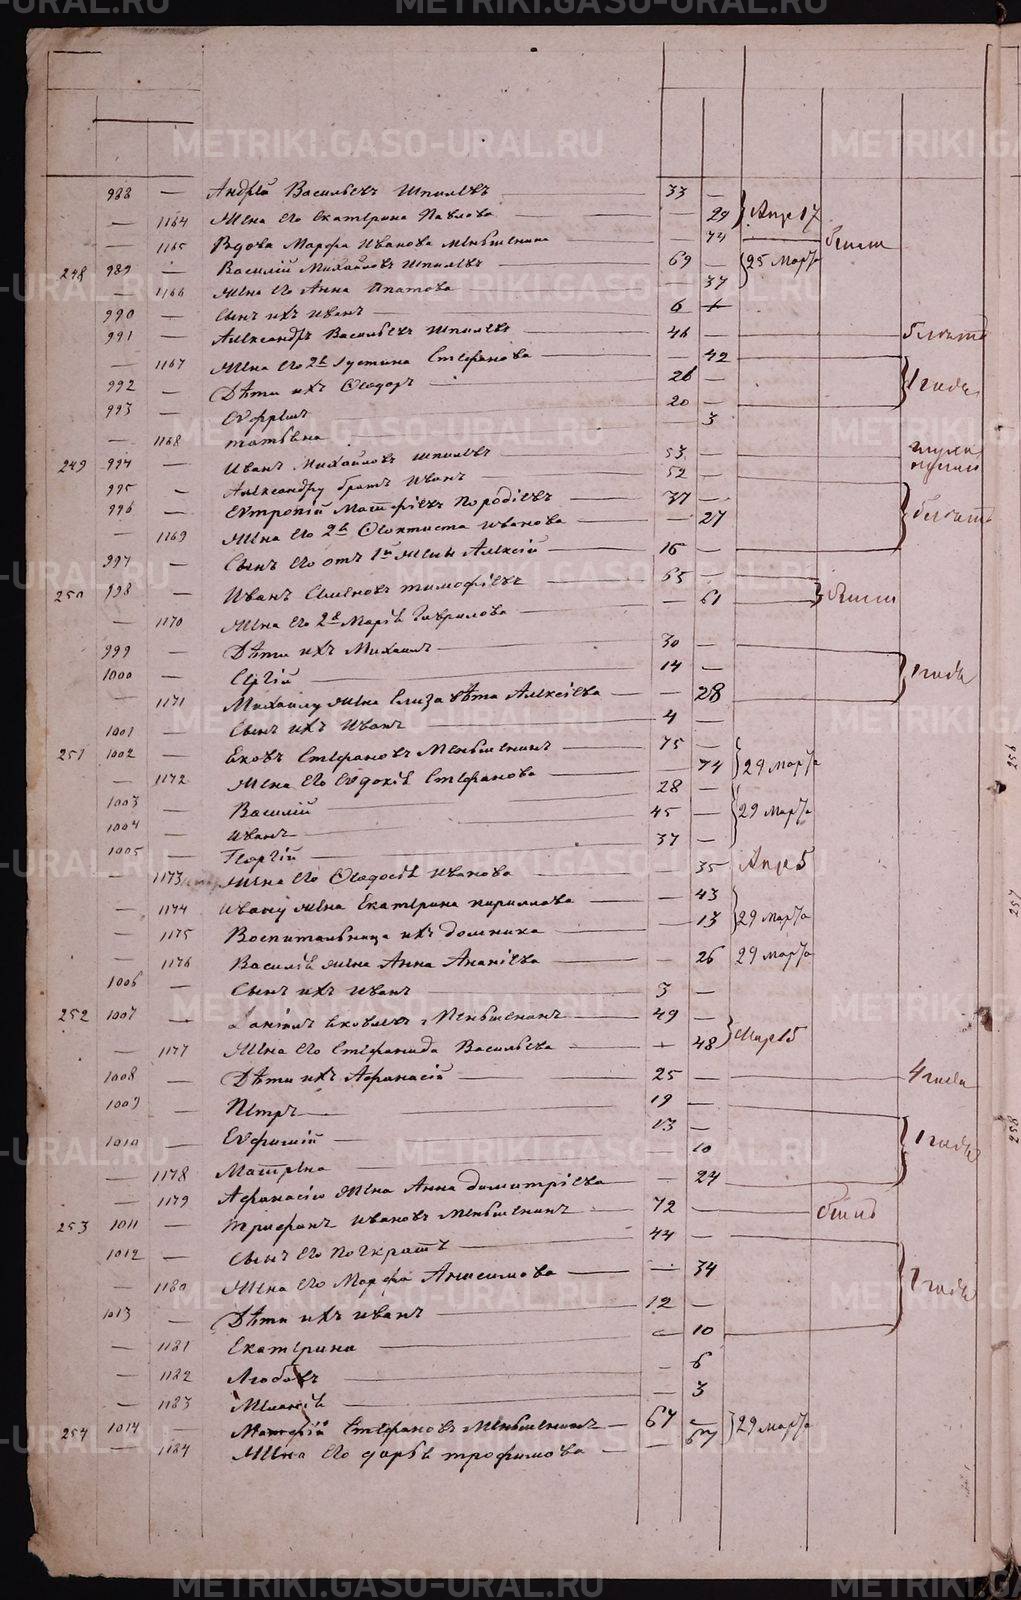 METRIKI.GASO-URAL.RU
988 — Андрей Васильевъ Шпилевъ 33 —
— 1164 Жена его Екатерина Павлова — 29 } Апре 17
— 1165 Вдова Марфа Иванова Меньшенина — 74
248 989 — Василий Михайловъ Шпилевъ 69 — } 25 Марта
— 1166 Жена его Анна Ипатова — 37
990 — Сынъ ихъ Иванъ 6
991 — Александръ Васильевъ Шпилевъ 46 —
— 1167 Жена его 2я Устина Стефанова — 42
992 — Дѣти ихъ Ѳеодоръ 26 — } 1 года
993 — 20 —
— 1168 Татьяна — 3
249 994 — Иванъ Михайловъ Шпилевъ 53 —
995 — Александру братъ Иванъ 52 —
996 — Евтропий Матфѣевъ 37 —
— 1169 Жена его 2я Ѳеоктиста Иванова — 27
997 — Сынъ его отъ 1й жены Алексѣй 16 —
250 998 — Иванъ Семеновъ Тимофѣевъ 65 —
— 1170 Жена его 2я Марія Гаврилова — 61
999 — Дѣти ихъ Михаилъ 30 —
1000 — Сергѣй 14 — } 1 года
— 1171 Михаилу жена Елизавѣта Алексѣева — 28
1001 — Сынъ ихъ Иванъ 4 —
251 1002 — Яковъ Стефановъ Меньшенинъ 75 —
— 1172 Жена его Евдокія Стефанова — 74 } 29 Марта
1003 — Василий 28 —
1004 — Иванъ 45 — } 29 Марта
1005 — Георгій 37 —
— 1173 Жена его Ѳеодосія Иванова — 35 Апре 5
— 1174 Ивану жена Екатерина Кириллова — 43
— 1175 Воспитанница ихъ Домника — 13 } 29 Марта
— 1176 Василія жена Анна Ананіева — 26 29 Марта
1006 — Сынъ ихъ Иванъ 3 —
252 1007 — Даніилъ Яковлевъ Меньшенинъ 49 —
— 1177 Жена его Стефанида Васильева — 48 } Мар 15
1008 — Дѣти ихъ Афанасій 25 — 4 года
1009 — Петръ 19 —
1010 — Евфимій 13 —
— 1178 Матрена — 10 } 1 года
— 1179 Афанасію жена Анна Димитріева — 24
253 1011 — Трифонъ Ивановъ Меньшенинъ 72 —
1012 — Сынъ его Панкратъ 44 —
— 1180 Жена его Марфа Анисимова — 34 года
1013 — Дѣти ихъ Иванъ 12 —
— 1181 Екатерина — 10
— 1182 Любовь — 6
— 1183 — 3
254 1014 — Стефановъ Меньшенинъ 67 — } 29 Марта
— 1184 Жена его Дарья Трофимова —
256
257
258